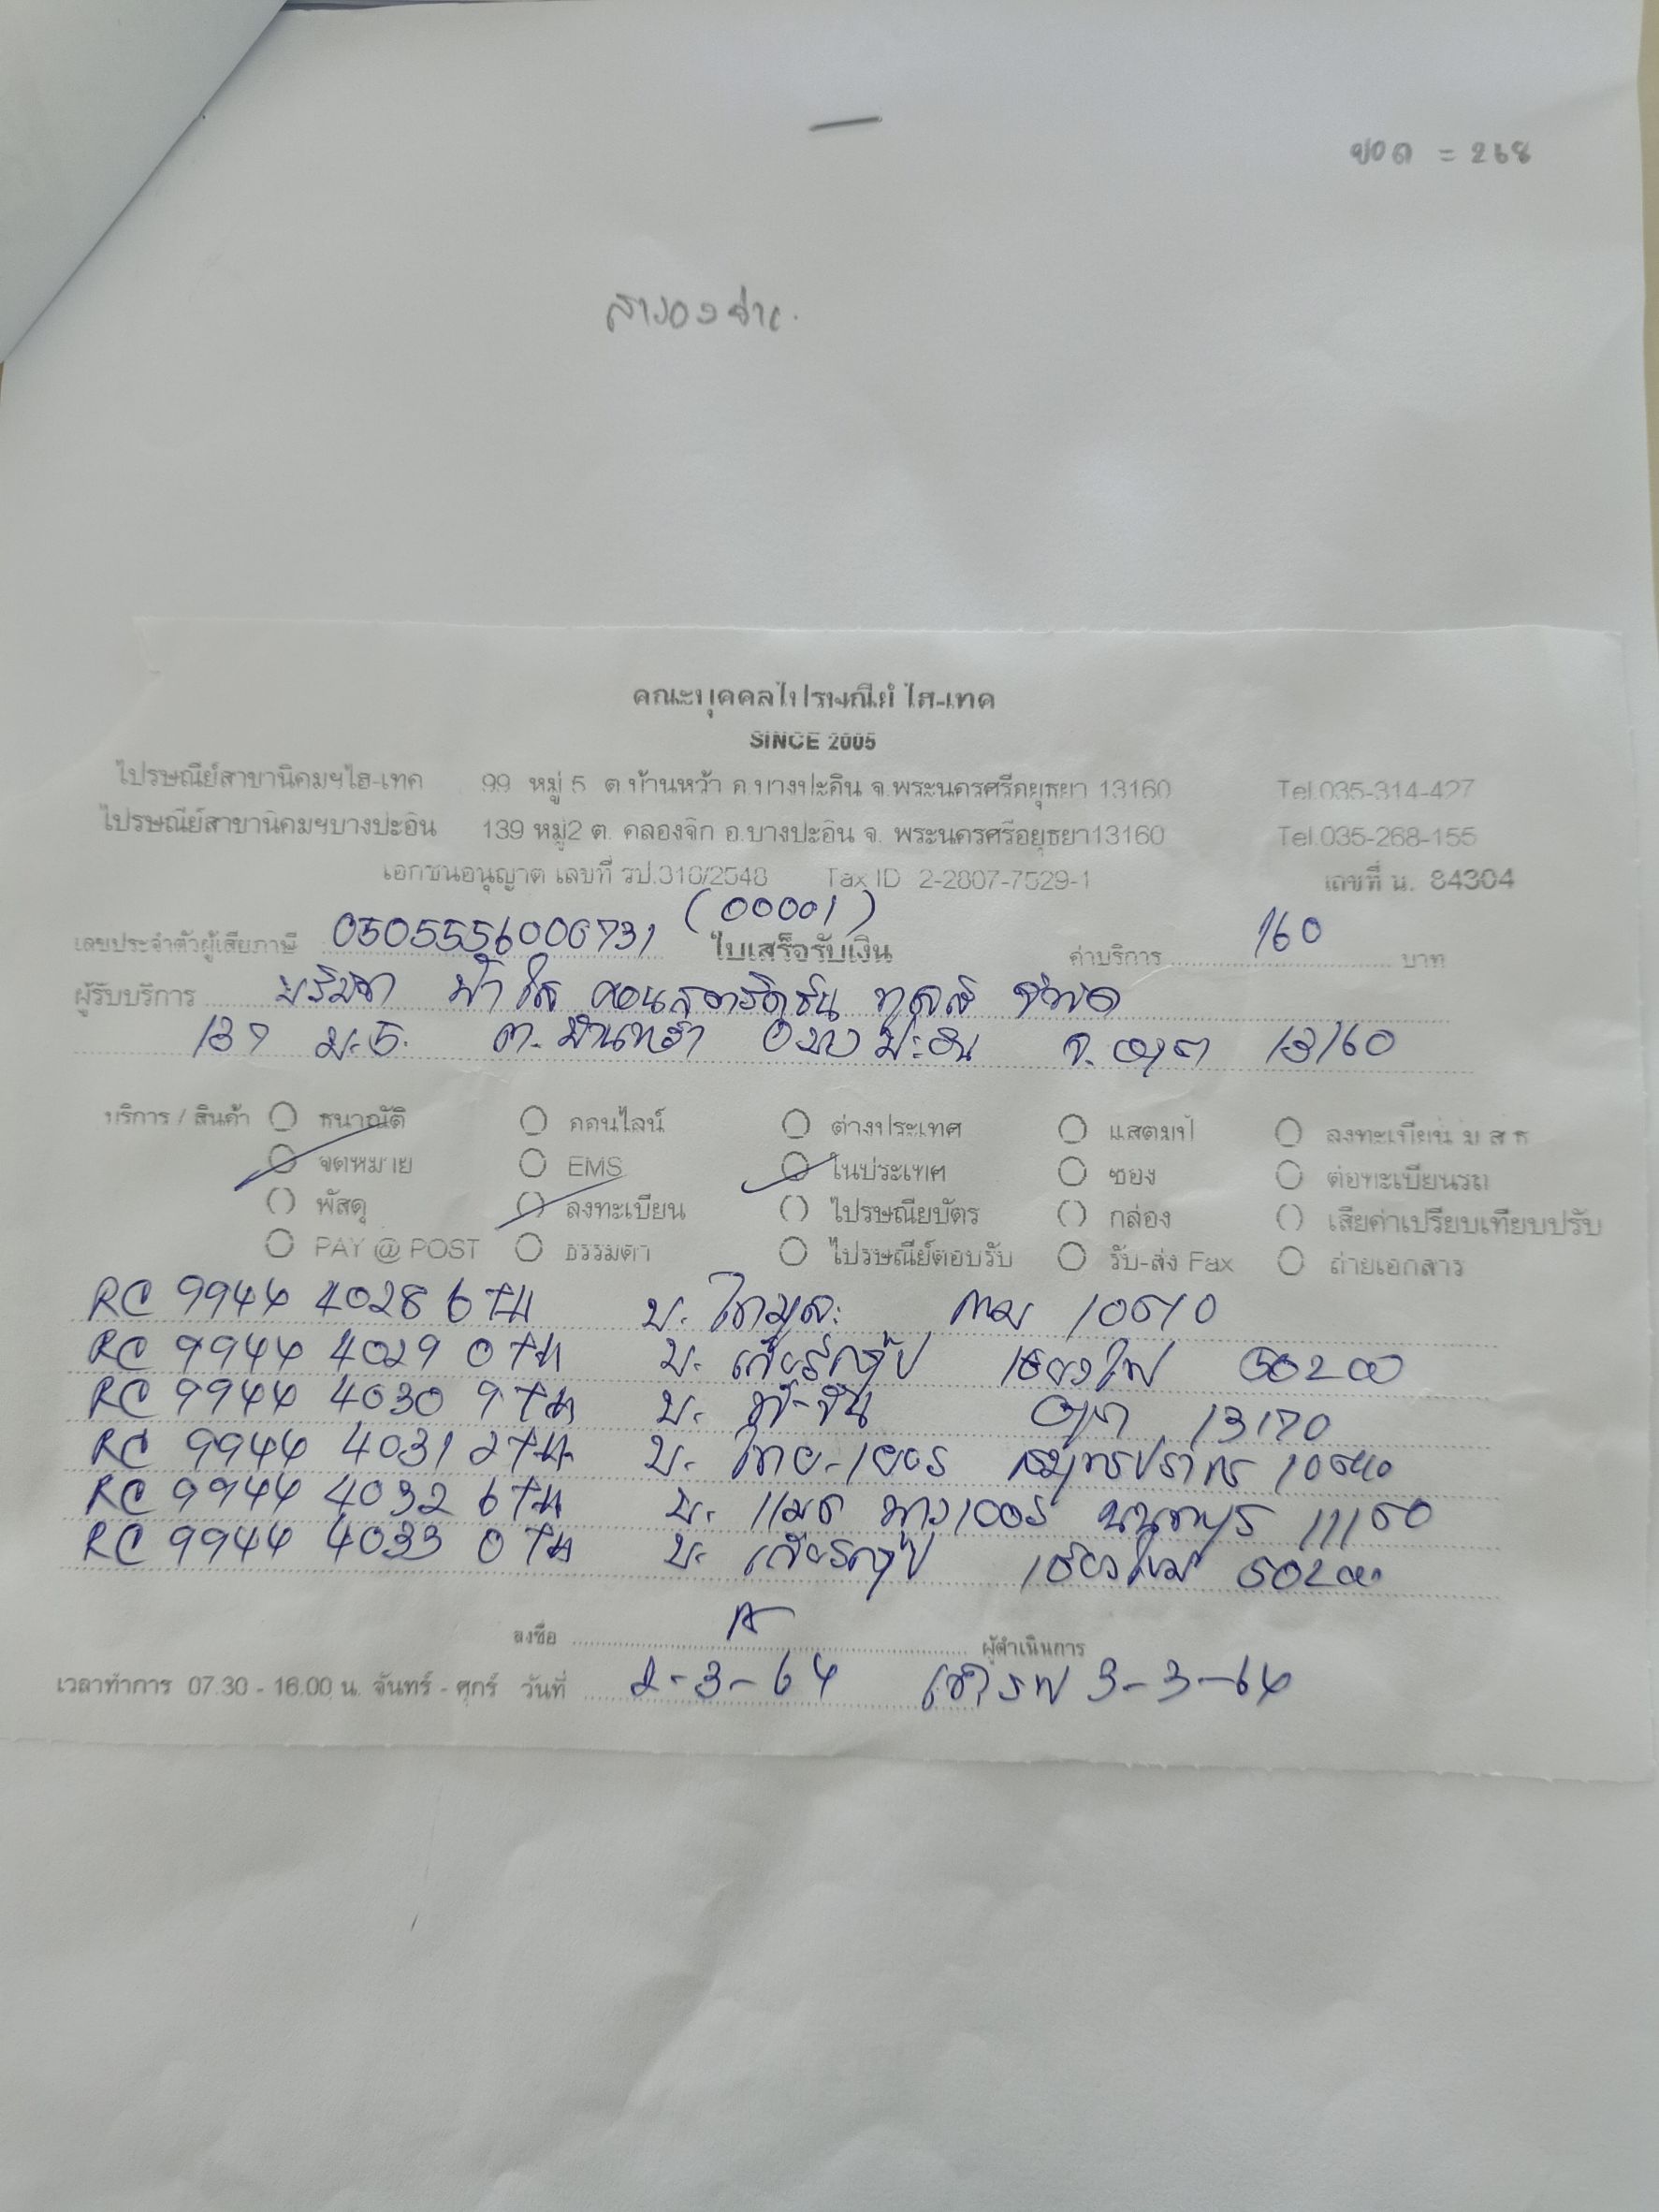 ยอด = 268
สำรองจ่าย.
คณะบุคคลไปรษณีย์ ไฮ-เทค
SINCE 2005
ไปรษณีย์สาขานิคมฯไฮ-เทค 99 หมู่ 5 ต.บ้านหว้า อ.บางปะอิน จ.พระนครศรีอยุธยา 13160 Tel.035-314-427
ไปรษณีย์สาขานิคมฯบางปะอิน 139 หมู่2 ต. คลองจิก อ.บางปะอิน จ. พระนครศรีอยุธยา13160 Tel.035-268-155
เอกชนอนุญาต เลขที่ รป.310/2548 Tax ID 2-2807-7529-1 เลขที่ น. 84304
(00001)
เลขประจำตัวผู้เสียภาษี 0505556006731 ใบเสร็จรับเงิน ค่าบริการ 160 บาท
ผู้รับบริการ บริษัท ฟ้าใส คอนสตรัคชั่น ทูลส์ จำกัด
139 ม.5. ต. บ้านหว้า อ.บางปะอิน จ. อยุธยา 13160
บริการ / สินค้า ธนาณัติ ออนไลน์ ต่างประเทศ แสตมป์ ลงทะเบียน ม ส ธ
จดหมาย EMS ในประเทศ ซอง ต่อทะเบียนรถ
พัสดุ ลงทะเบียน ไปรษณียบัตร กล่อง เสียค่าเปรียบเทียบปรับ
PAY @ POST ธรรมดา ไปรษณีย์ตอบรับ รับ-ส่ง Fax ถ่ายเอกสาร
RC 9944 4028 6 TH บ. กทม 10510
RC 9944 4029 0 TH บ. เชียงใหม่ 50200
RC 9944 4030 9 TH บ. 13170
RC 9944 4031 2 TH บ. ไทย- สมุทรปราการ 10540
RC 9944 4032 6 TH บ. นนทบุรี 11150
RC 9944 4033 0 TH บ. เชียงใหม่ 50200
ลงชื่อ ผู้ดำเนินการ
เวลาทำการ 07.30 - 16.00 น. จันทร์ - ศุกร์ วันที่ 2-3-64 3-3-64